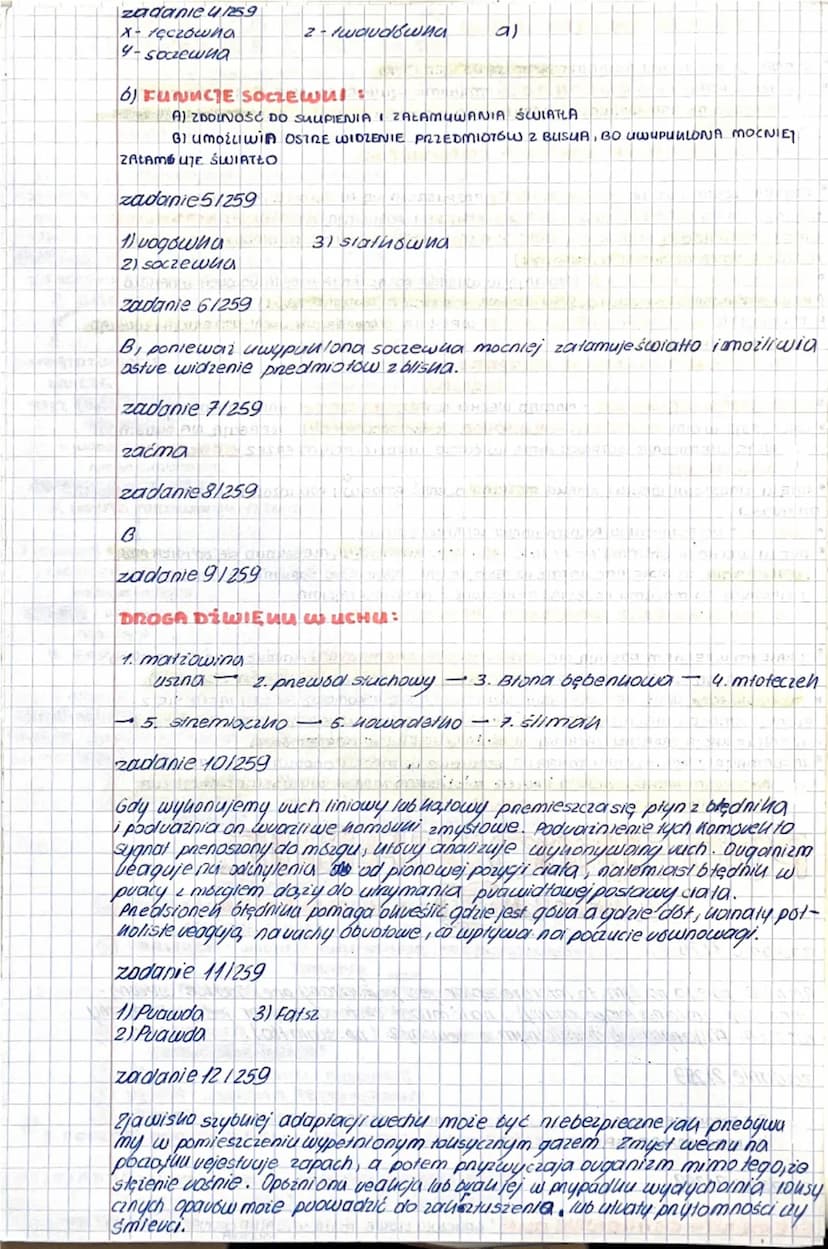 zadanie 4/259
x - tęczówka z - twardówka a)
y - soczewka
b) FUNKCJE SOCZEWKI :
A) ZDOLNOŚĆ DO SKUPIENIA I ZAŁAMYWANIA ŚWIATŁA
B) UMOŻLIWIA OSTRE WIDZENIE PRZEDMIOTÓW Z BLISKA, BO UWYPUKLONA MOCNIEJ
ZAŁAMUJE ŚWIATŁO
zadanie 5/259
1) rogówka 3) siatkówka
2) soczewka
zadanie 6/259
B, ponieważ uwypuklona soczewka mocniej załamuje światło i możliwia
ostre widzenie przedmiotów z bliska.
zadanie 7/259
zaćma
zadanie 8/259
B
zadanie 9/259
DROGA DŹWIĘKU W UCHU:
1. małżowina
uszna → 2. przewód słuchowy → 3. Błona bębenkowa → 4. młoteczek
→ 5. strzemiączko → 6. kowadełko → 7. ślimak
zadanie 10/259
Gdy wykonujemy ruch liniowy lub kątowy przemieszcza się płyn z błędnika
i podrażnia on wrażliwe komórki zmysłowe. Podrażnienie tych komórek to
sygnał przenoszony do mózgu, który analizuje wykonywany ruch. Organizm
reaguje na odchylenia od pionowej pozycji ciała, natomiast błędnik w
pracy z mózgiem dąży do utrzymania prawidłowej postawy ciała.
Przedsionek błędnika pomaga określić gdzie jest góra a gdzie dół, kanały pół-
koliste reagują na ruchy obrotowe, co wpływa na poczucie równowagi.
zadanie 11/259
1) Prawda 3) Fałsz
2) Prawda
zadanie 12/259
Zjawisko szybkiej adaptacji węchu może być niebezpieczne jak przebywa
my w pomieszczeniu wypełnionym toksycznym gazem. Zmysł węchu na
początku rejestruje zapach, a potem przyzwyczaja organizm mimo tego, że
stężenie rośnie. Opóźniona reakcja lub brak jej w przypadku wydychania toksy
cznych oparów może prowadzić do zakrztuszenia, lub utraty przytomności czy
śmierci.